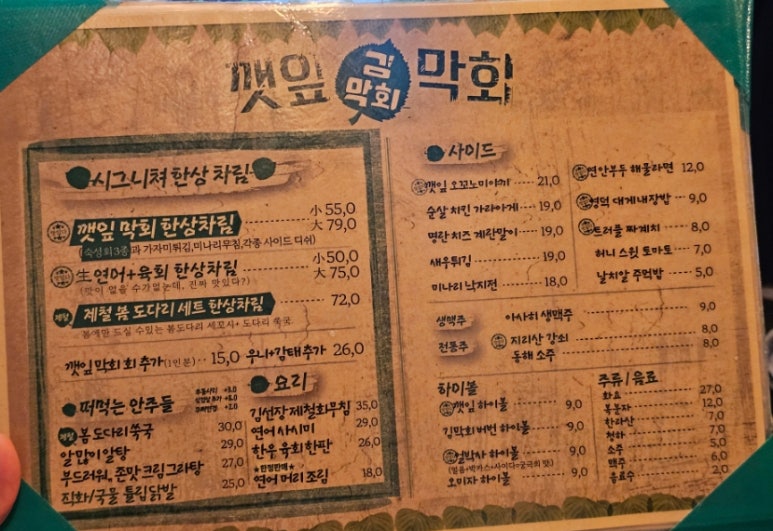 깻잎 김막회 막회
시그니쳐 한상차림
깻잎 막회 한상차림 小 55,0
大 79,0
(숙성회 3종과 가자미튀김, 미나리무침, 각종 사이드 디쉬)
生연어+육회 한상차림 小 50,0
大 75,0
(맛이 없을 수가없는데, 진짜 맛있다?)
제철 봄 도다리 세트 한상차림 72,0
봄에만 드실 수있는 봄도다리 세꼬시+ 도다리 쑥국
깻잎 막회 회 추가(1인분) 15,0 우니+감태추가 26,0
떠먹는 안주들
제철 봄 도다리쑥국 30,0
알 많이 알탕 29,0
부드러워, 존맛 크림그라탕 27,0
직화/국물 튤립닭발 25,0
요리
김선장 제철회무침 35,0
연어 사시미 29,0
한우 육회한판 26,0
★한정판매★
연어 머리 조림 18,0
사이드
깻잎 오꼬노미야끼 21,0
순살 치킨 가라아게 19,0
명란 치즈 계란말이 19,0
새우튀김 19,0
미나리 낙지전 18,0
연안부두 해물라면 12,0
영덕 대게내장밥 9,0
트러플 짜계치 8,0
허니 스윗 토마토 7,0
날치알 주먹밥 5,0
생맥주 아사히 생맥주 9,0
전통주 지리산 강쇠 8,0
동해 소주 8,0
하이볼
깻잎 하이볼 9,0
김막회 버번 하이볼 9,0
얼박사 하이볼 9,0
(얼음+박카스+사이다=궁극의 맛)
오미자 하이볼 9,0
주류/음료
화요 27,0
복분자 12,0
한라산 7,0
청하 7,0
소주 5,0
맥주 6,0
음료수 2,0